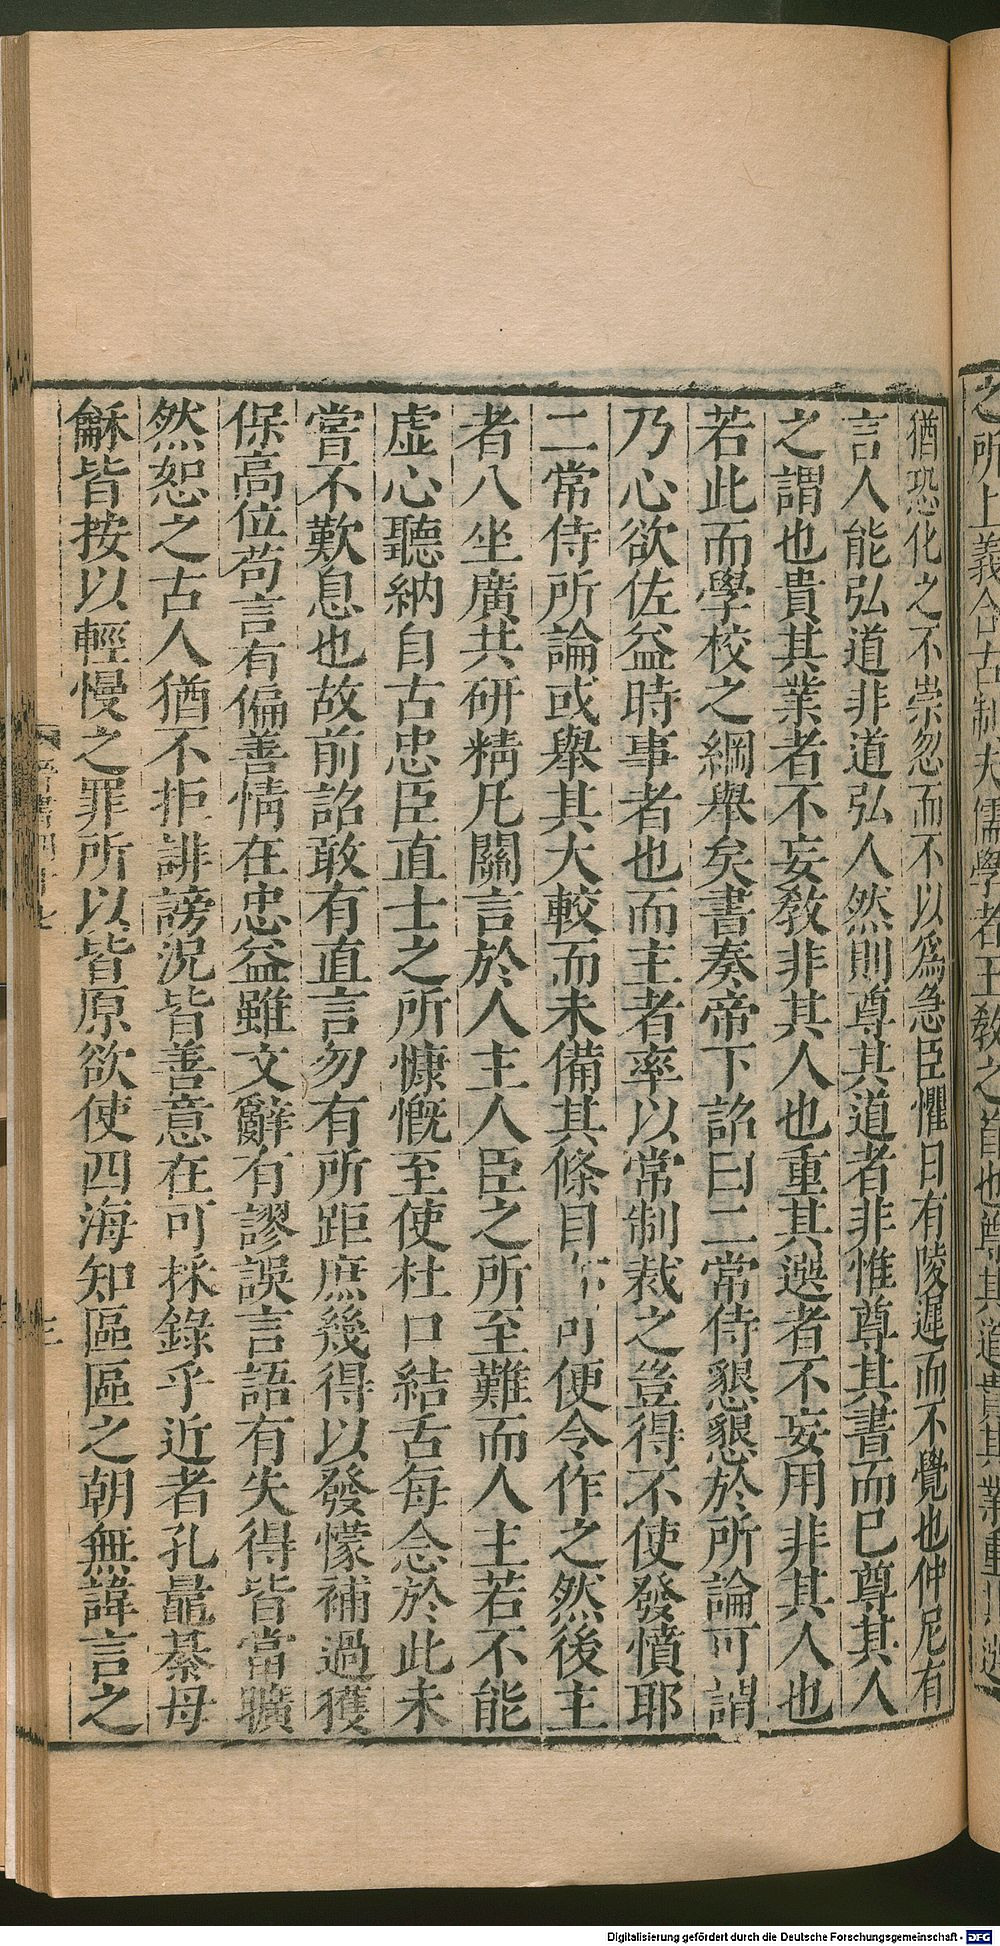 之所上義合古制夫儒學者王教之首也尊其道貴其業重其選
猶恐化之不崇忽而不以爲急臣懼日有陵遲而不覺也仲尼有
言人能弘道非道弘人然則尊其道者非惟尊其書而已尊其人
之謂也貴其業者不妄敎非其人也重其選者不妄用非其人也
若此而學校之綱舉矣書奏帝下詔曰二常侍懇懇於所論可謂
乃心欲佐益時事者也而主者率以常制裁之豈得不使發憤耶
二常侍所論或舉其大較而未備其條目亦可便令作之然後主
者八坐廣共研精凡關言於人主人臣之所至難而人主若不能
虛心聽納自古忠臣直士之所慷慨至使杜口結舌每念於此未
嘗不歎息也故前詔敢有直言勿有所距庶幾得以發懞補過獲
保高位苟言有偏善情在忠益雖文辭有謬誤言語有失得皆當曠
然恕之古人猶不拒誹謗況皆善意在可採錄乎近者孔鼂綦母
龢皆按以輕慢之罪所以皆原欲使四海知區區之朝無諱言之
三
Digitalisierung gefördert durch die Deutsche Forschungsgemeinschaft - DFG